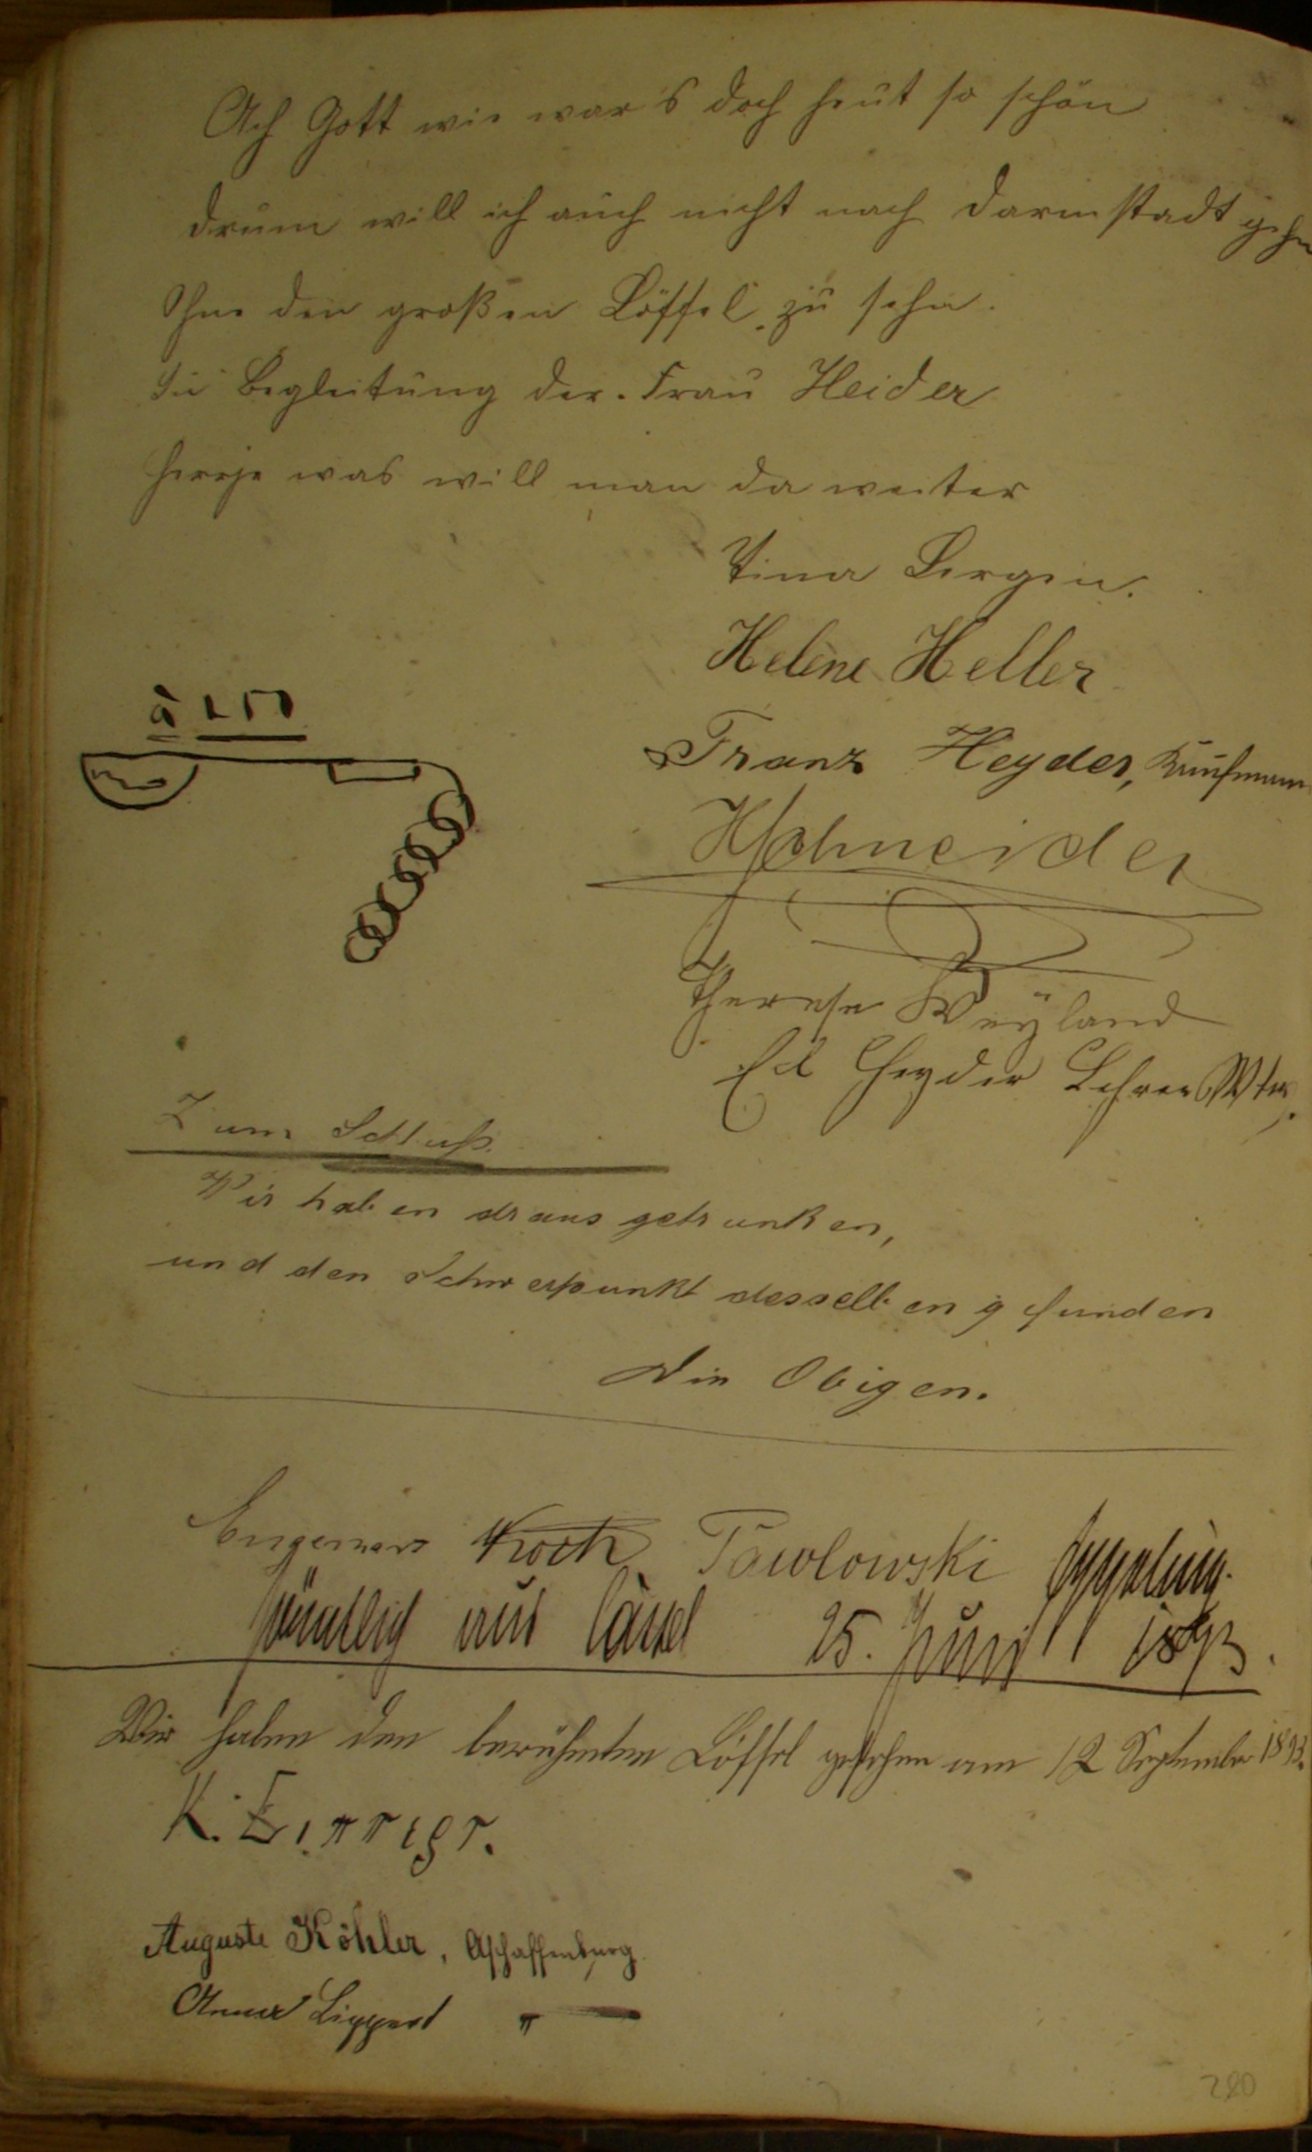 Ach Gott wie war's doch heut so schön
drum will ich auch nicht nach Darmstadt gehn
Ohne den großen Löffel zu sehn.
Die Begleitung der Frau Heider
Herrje was will man da weiter
Tina Bergen.
Helene Heller
Franz Heyder, Kaufmann
HSchneider
Therese Weyland
Ed Heyder Lehrer
Zum Schluß.
Wir haben draus getrunken,
und den Schwerpunkt desselben gfunden
Die Obigen.
Koch Pawlowski
sämtlich aus Cassel 25. Juni 1893.
Wir haben den berühmten Löffel gesehen am 12 September 1893.
K.
Auguste Köhler, Aschaffenburg.
Anna Lippert " —
280